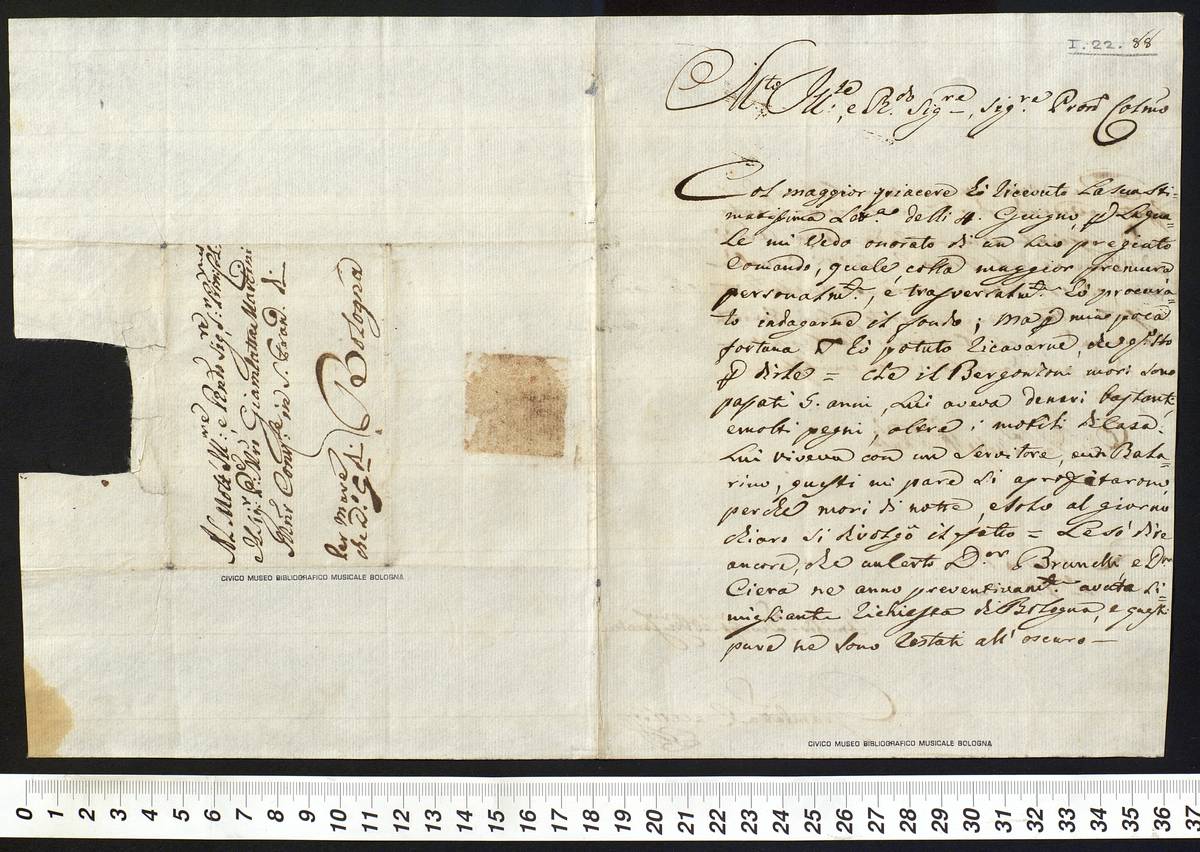 I. 22. 88
Mto Ill:re, e Rdo Sigre, Sigre Pron Colmo
Col maggior piacere hò riceuto la sua sti-
matissima Letra delli 4. Giugno, p la qua=
le mi vedo onorato di un suo pregiato
Comando, quale colla maggior premura
personalmte, e trasversalmte hò procura=
to indagarne il fondo; ma p mia poca
fortuna hò potuto ricavarne, che questo
p dirle = che il Bergonzoni morì sono
passati 5. anni, lui aveva denari bastanti,
e molti pegni, oltre i mobili di Casa.
Lui viveva con un Servitore, e un Bala=
rino, questi mi pare si aprofitarono,
perchè morì di notte e solo al giorno
chiaro si divolgò il fatto = Le sò dire
ancora, che un certo Dor Brunelli, e Dn
Ciera ne anno preventivamte avuta si=
migliante richiesta di Bologna, e questi
pure ne sono restati all'oscuro—
Al Molt Ill:re e Rndo Sig
Giambattta Martini
Min: Convle in S. Franco di
Bologna
per mare
che D:o G:di
CIVICO MUSEO BIBLIOGRAFICO MUSICALE BOLOGNA
CIVICO MUSEO BIBLIOGRAFICO MUSICALE BOLOGNA
0 1 2 3 4 5 6 7 8 9 10 11 12 13 14 15 16 17 18 19 20 21 22 23 24 25 26 27 28 29 30 31 32 33 34 35 36 37